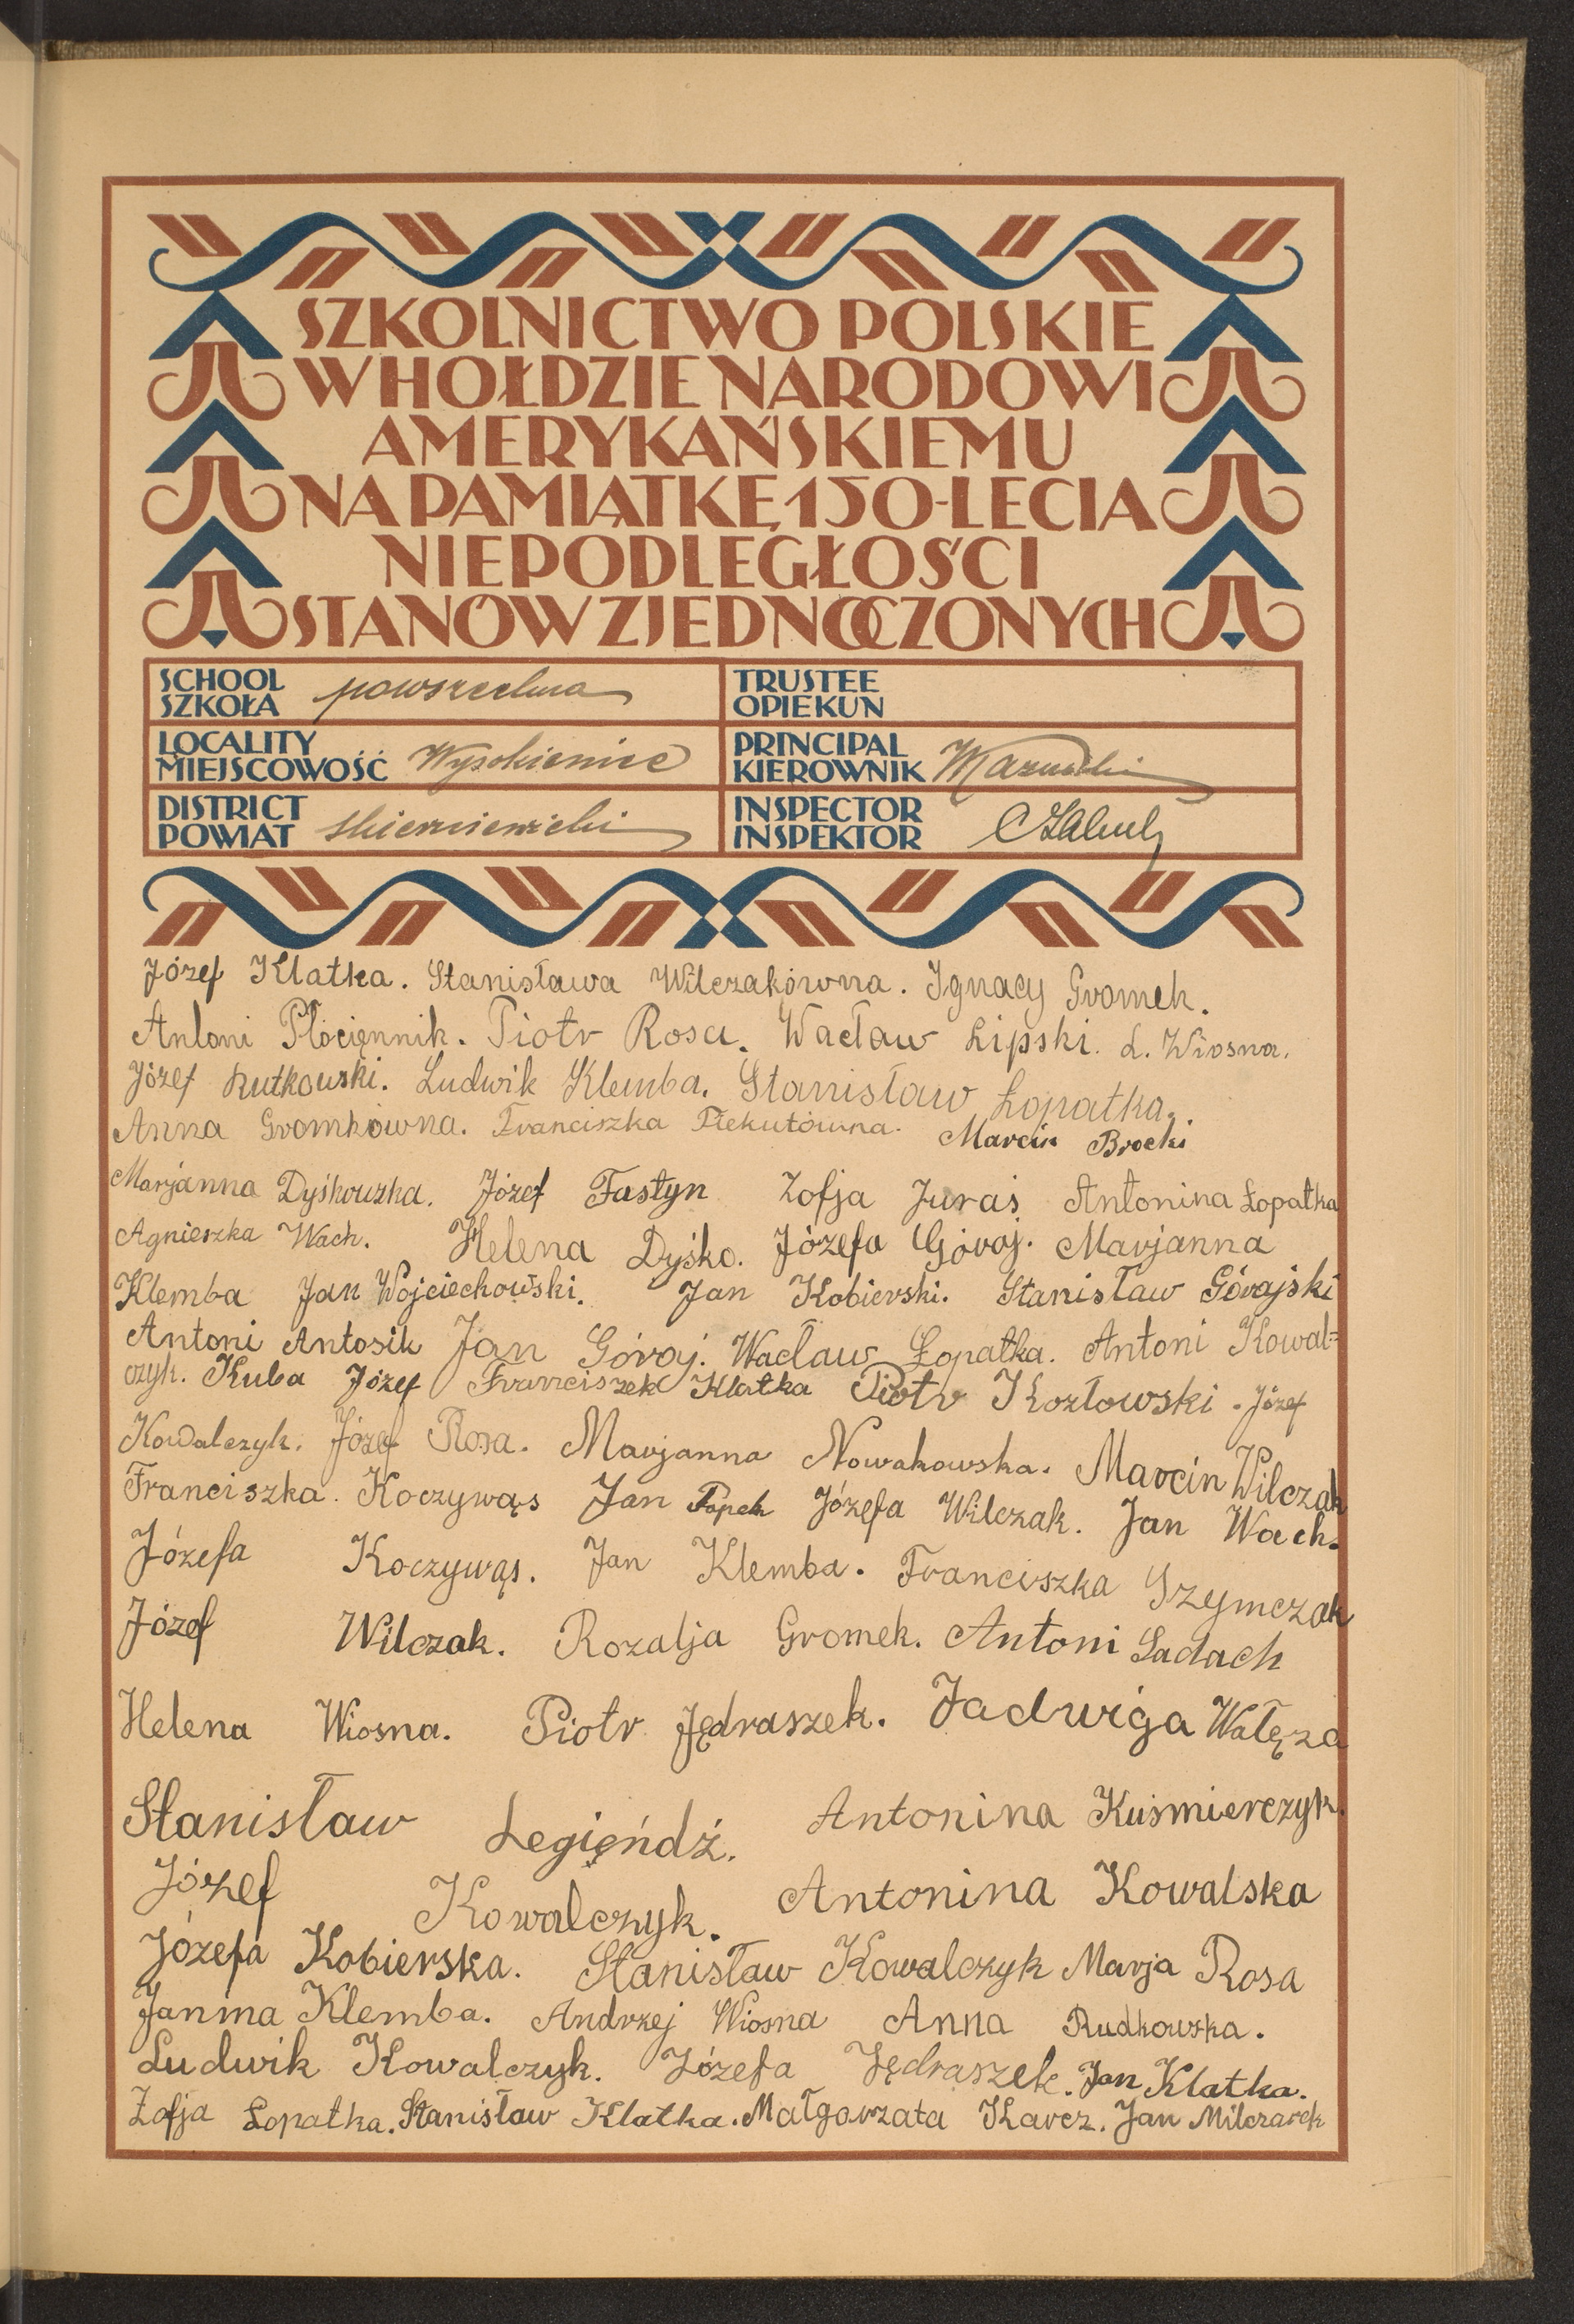 SZKOLNICTWO POLSKIE
W HOŁDZIE NARODOWI
AMERYKAŃSKIEMU
NA PAMIĄTKĘ 150-LECIA
NIEPODLEGŁOŚCI
STANÓW ZJEDNOCZONYCH
SCHOOL SZKOŁA powszechna
TRUSTEE OPIEKUN
LOCALITY MIEJSCOWOŚĆ Wysokienice
PRINCIPAL KIEROWNIK
DISTRICT POWIAT skierniewicki
INSPECTOR INSPEKTOR
Józef Klatka. Stanisława Wilczakówna. Ignacy Gromek.
Antoni Płóciennik. Piotr Rosa. Wacław Lipski. L. Wiosna.
Józef Rutkowski. Ludwik Klemba. Stanisław Łopatka.
Anna Gromkówna. Franciszka Piekutówna. Marcin Brocki
Marjanna Dyśkouzka. Józef Fastyn Zofja Juraś Antonina Łopatka
Agnieszka Wach. Helena Dyśko. Józefa Góraj. Marjanna
Klemba Jan Wojciechowski. Jan Kobierski. Stanisław Górajski
Antoni Antosik Jan Góraj. Wacław Łopatka. Antoni Kowal=
czyk. Kuba Józef Franciszek Klatka Piotr Kozłowski. Józef
Kowalczyk. Józef Rosa. Marjanna Nowakowska. Marcin Wilczak
Franciszka. Koczywąs Jan Popek Józefa Wilczak. Jan Wach.
Józefa Koczywąs. Jan Klemba. Franciszka Szymczak
Józef Wilczak. Rozalja Gromek. Antoni Sadach
Helena Wiosna. Piotr Jędraszek. Jadwiga Wałęza
Stanisław Legięńdź. Antonina Kuśmierczyk.
Józef Kowalczyk. Antonina Kowalska
Józefa Kobierska. Stanisław Kowalczyk Marja Rosa
Janina Klemba. Andrzej Wiosna Anna Rudkowska.
Ludwik Kowalczyk. Józefa Jędraszek. Jan Klatka.
Zofja Łopatka. Stanisław Klatka. Małgorzata Karcz. Jan Milczarek